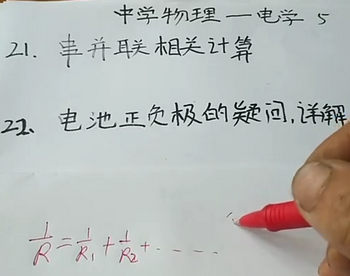 中学物理一电学 5
21. 串并联相关计算
22. 电池正负极的疑问,详解
1/R=1/R₁+1/R₂+.....